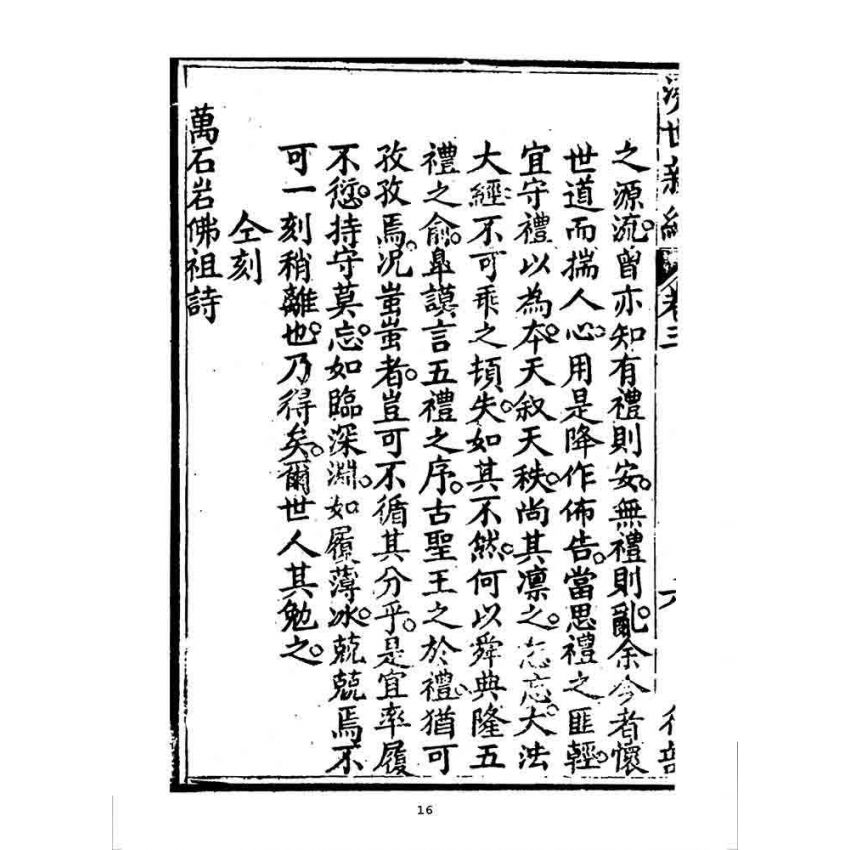 濟世新編 卷三 六 行部
之源流。曾亦知有禮則安。無禮則亂。余今者懷
世道而揣人心。用是降作佈告。當思禮之匪輕。
宜守禮以為本。天叙天秩。尚其凛之。忘。大法
大經。不可乘之頓失。如其不然。何以舜典隆五
禮之俞。皐謨言五禮之序。古聖王之於禮。猶可
孜孜焉。况蚩蚩者。豈可不循其分乎。是宜率履
不愆。持守莫忘。如臨深淵。如履薄冰。兢兢焉。不
可一刻稍離也。乃得矣。爾世人其勉之。
仝刻
萬石岩佛祖詩
16